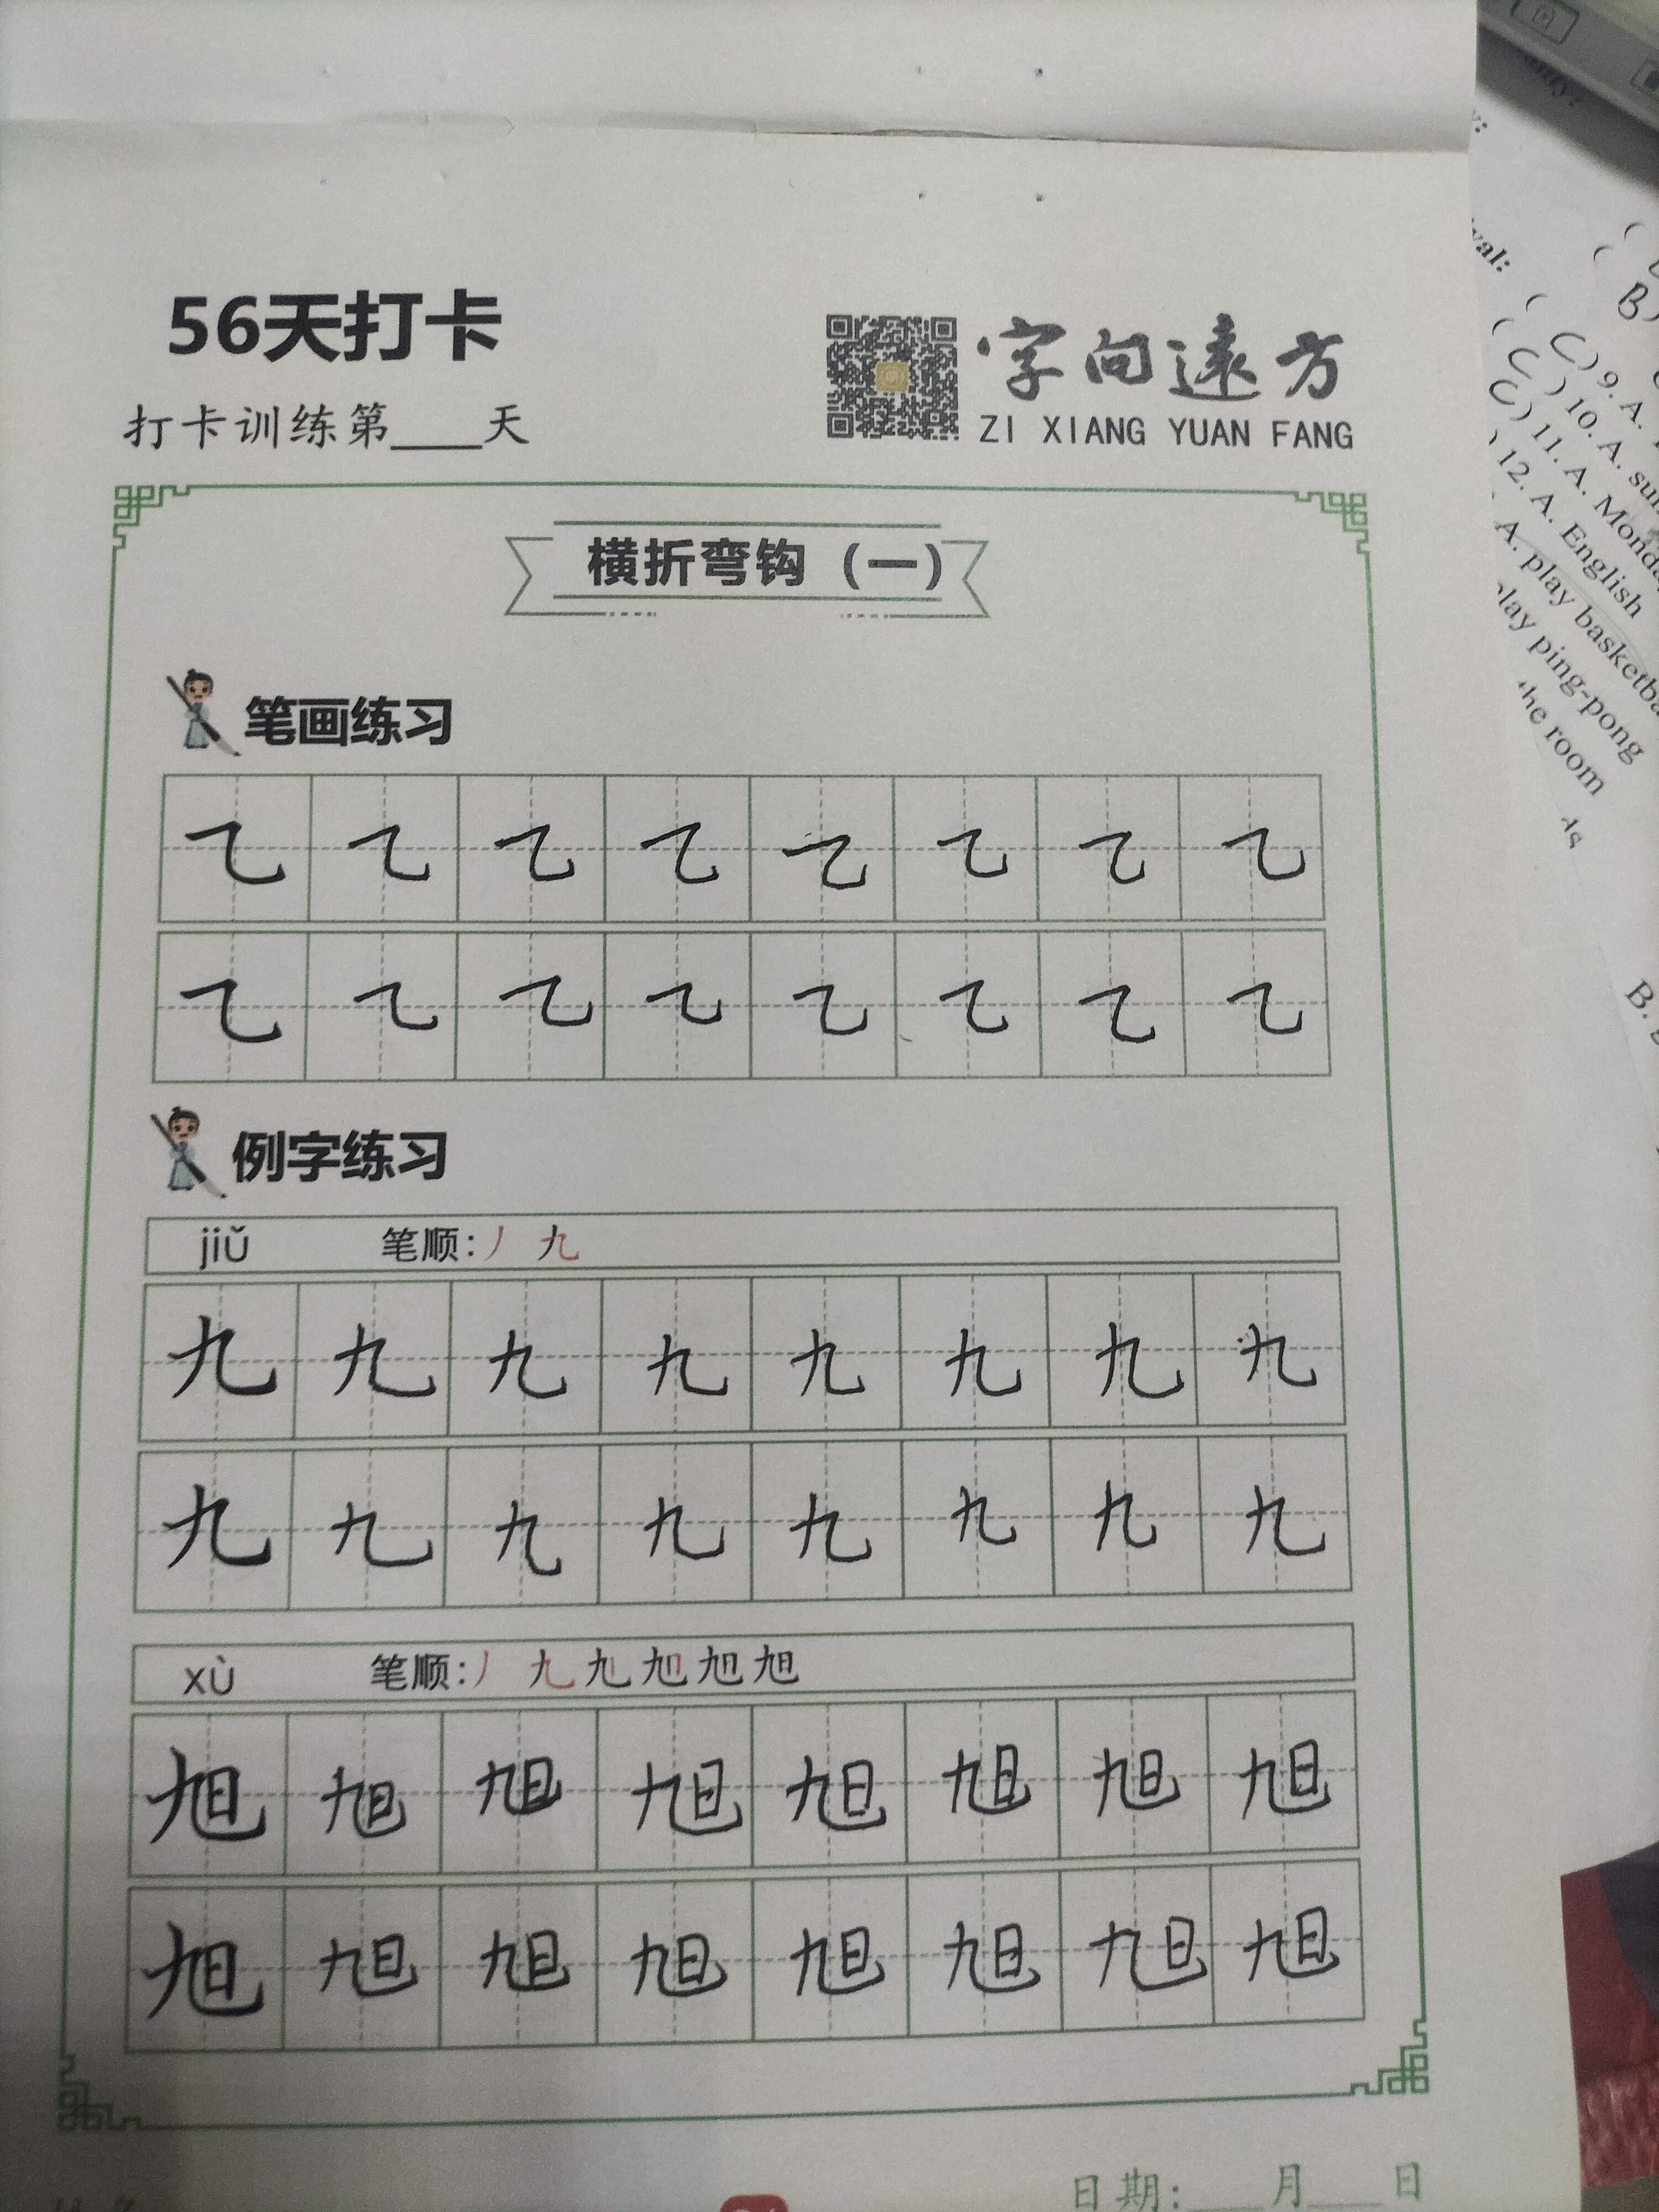 56天打卡
打卡训练第____天
字向遠方
ZI XIANG YUAN FANG
横折弯钩（一）
笔画练习
例字练习
jiǔ 笔顺：丿 九
九 九 九 九 九 九 九 九
九 九 九 九 九 九 九 九
xù 笔顺：丿 九 旭 旭
旭 旭 旭 旭 旭 旭 旭 旭
旭 旭 旭 旭 旭 旭 旭 旭
日期：___月___日
val:
B)
(C) 9. A.
(C) 10. A. sun
(C) 11. A. Monda
) 12. A. English
A. play basketba
play ping-pong
the room
As
B.